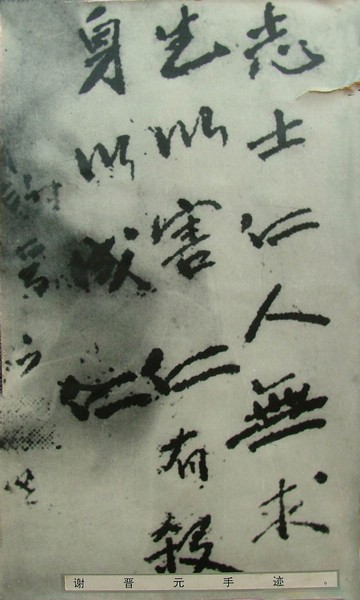 志士仁人無求
生以害仁有殺
身以成仁
謝晉元
谢晋元手迹。